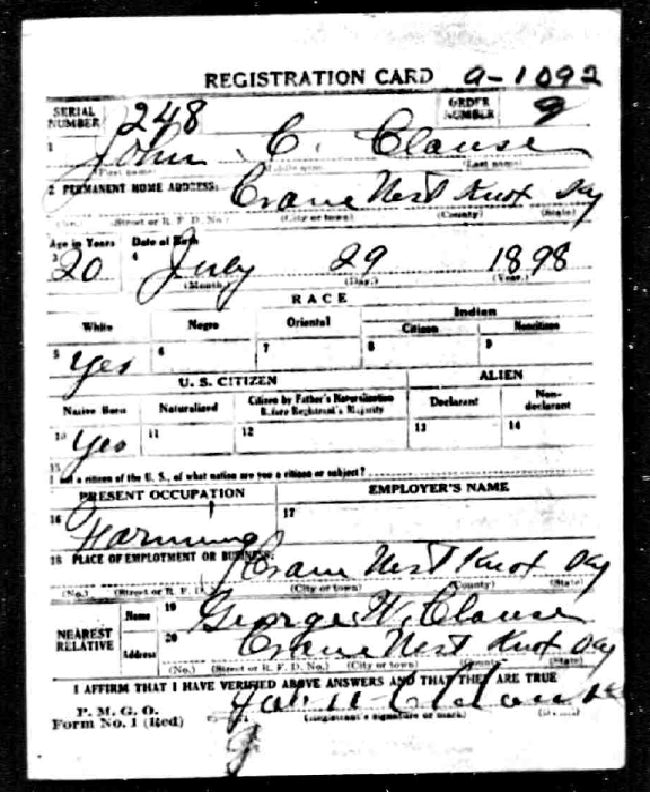 REGISTRATION CARD 9-1092
SERIAL NUMBER 248 ORDER NUMBER 9
1 John C. Clouse
(First name) (Middle name) (Last name)
2 PERMANENT HOME ADDRESS: Crane Nest Knox Ky
(No.) (Street or R. F. D. No.) (City or town) (County) (State)
Age in Years Date of Birth
3 20 4 July 29 1898
(Month.) (Day.) (Year.)
RACE
White Negro Oriental Indian
Citizen Noncitizen
5 Yes 6 7 8 9
U. S. CITIZEN ALIEN
Native Born Naturalized Citizen by Father's Naturalization Before Registrant's Majority Declarant Non-declarant
10 Yes 11 12 13 14
15 If not a citizen of the U. S., of what nation are you a citizen or subject?
PRESENT OCCUPATION EMPLOYER'S NAME
16 Farming 17
18 PLACE OF EMPLOYMENT OR BUSINESS:
Crane Nest Knox Ky
(No.) (Street or R. F. D.) (City or town) (County) (State)
NEAREST RELATIVE Name 19 George W. Clouse
Address 20 Crane Nest Knox Ky
(No.) (Street or R. F. D. No.) (City or town) (County) (State)
I AFFIRM THAT I HAVE VERIFIED ABOVE ANSWERS AND THAT THEY ARE TRUE
P. M. G. O.
Form No. 1 (Red)
(Registrant's signature or mark)